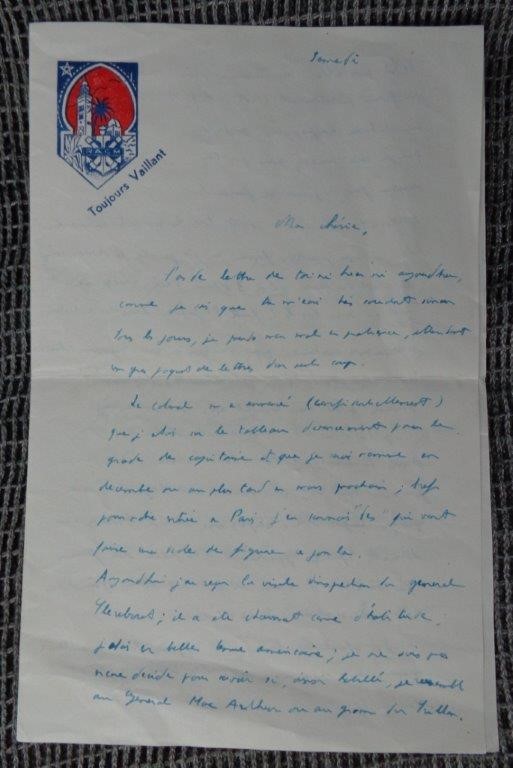 Samedi
Toujours Vaillant
Ma chérie,
Pas de lettre de toi ni hier ni aujourd'hui,
comme je sais que tu m'écris très souvent sinon
tous les jours, je prends mon mal en patience, attendant
un gros paquet de lettres d'un seul coup.
Le colonel m'a annoncé (confidentiellement)
que j'étais sur le tableau d'avancement pour le
grade de capitaine et que je serai nommé en
décembre ou au plus tard en mars prochain ; bref
pour notre rentrée à Paris. J'en connais "des" qui vont
faire une drôle de figure ce jour là.
Aujourd'hui j'ai reçu la visite d'inspection du général
; il a été charmant comme d'habitude.
J'étais en belle tenue américaine ; je ne suis pas
encore décidé pour savoir si, ainsi habillé, je ressemble
au Général Mac Arthur ou au groom du